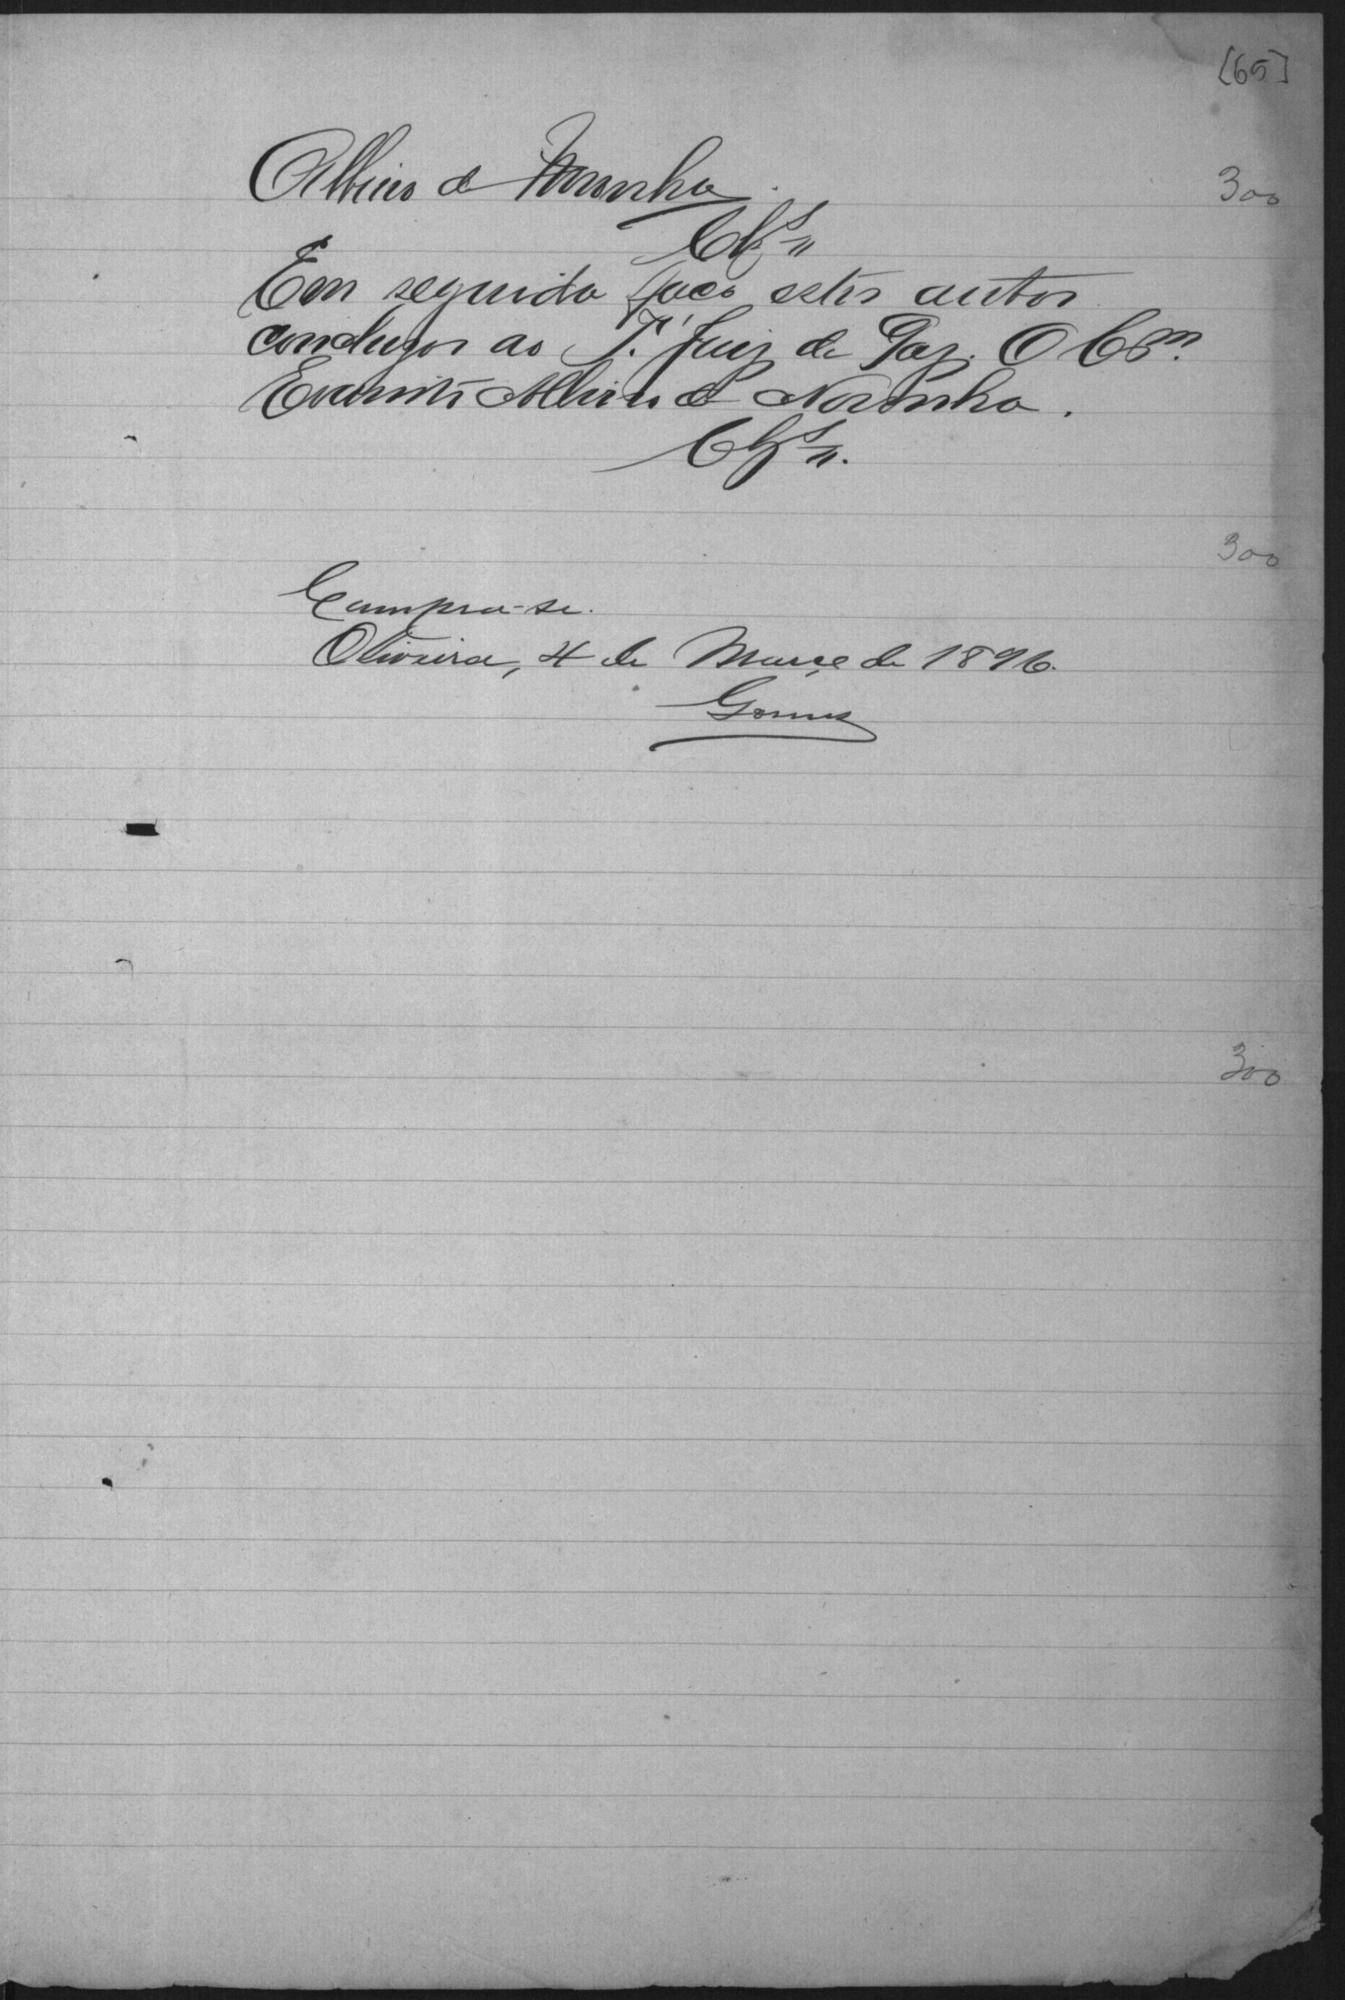 [65]
Albino de Noronha 300
Clz.s
Em seguida faço estes autos
conclusos ao 1.º Juiz de Paz. O Esm.
Albino de Noronha.
Clz.s
300
Cumpra-se.
Oliveira, 4 de Março de 1896.
Gomes
300